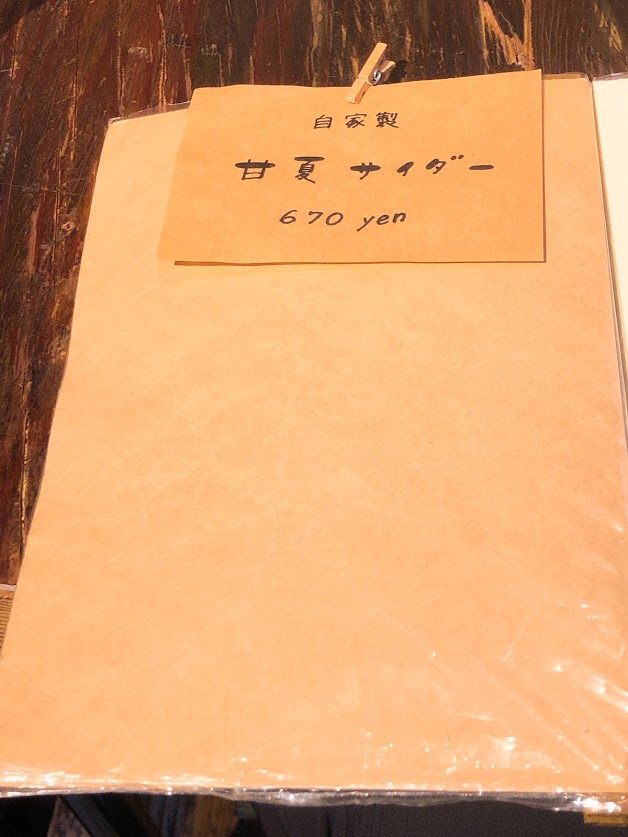 自家製
甘夏 サイダー
670 yen